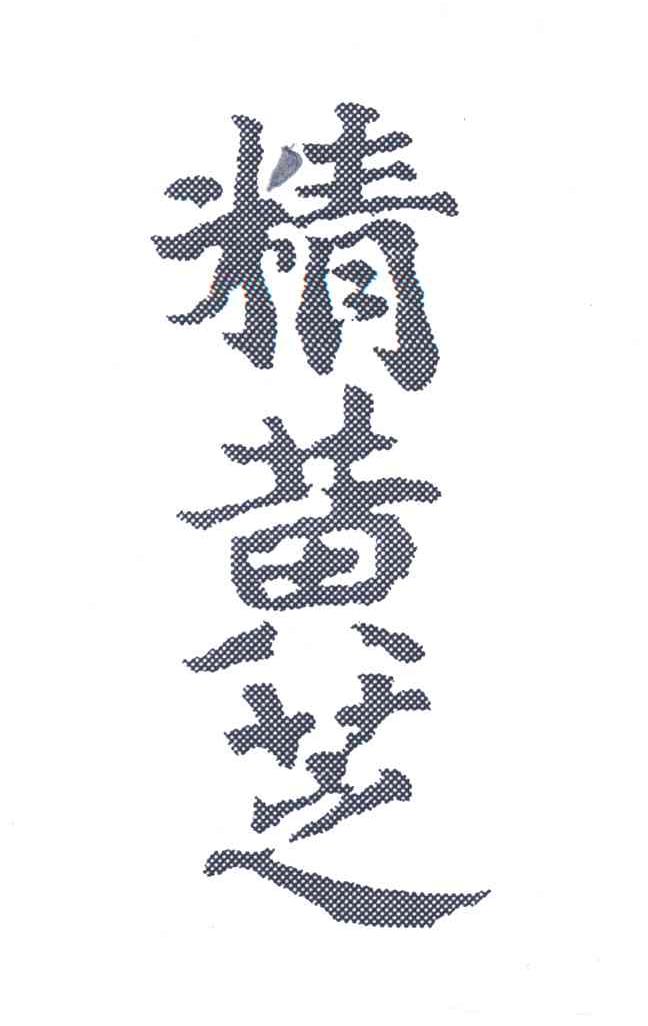 精黄芝